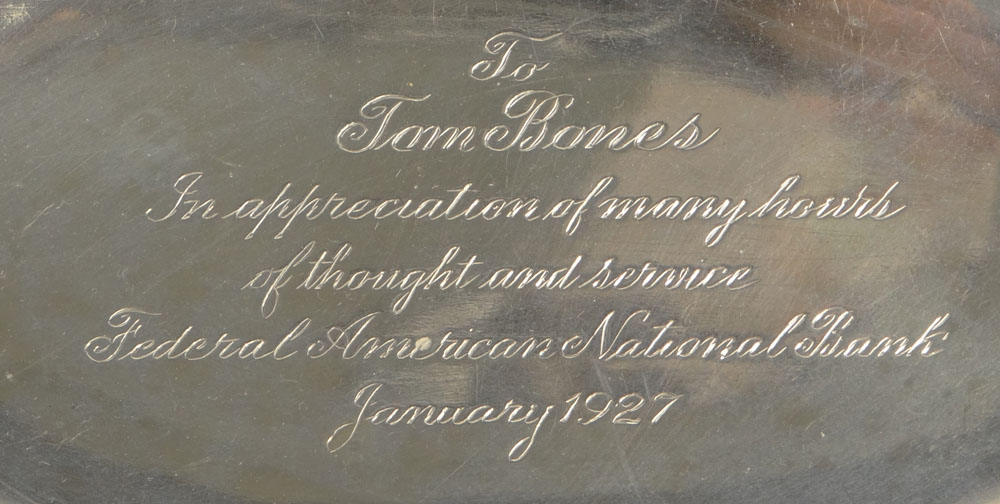 To
Tom Bones
In appreciation of many hours
of thought and service
Federal American National Bank
January 1927